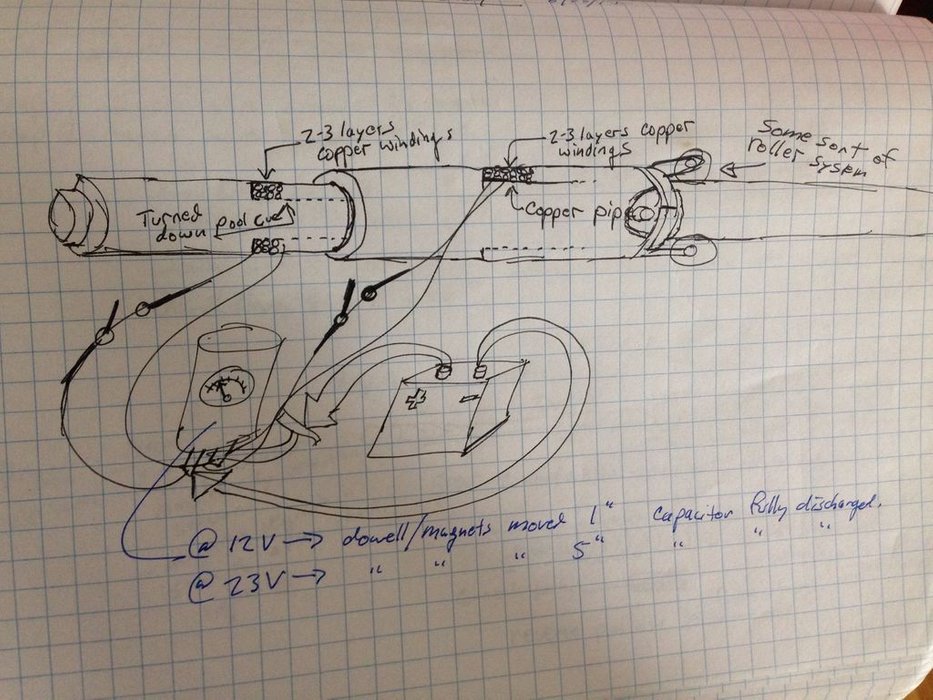 2-3 layers
copper windings
2-3 layers copper
windings
Some sort of
roller system
Turned
down
pool cue
Copper pipe
+
-
@ 12V → dowell/magnets moved 1" capacitor fully discharged.
@ 23V → " " " 5" " " "